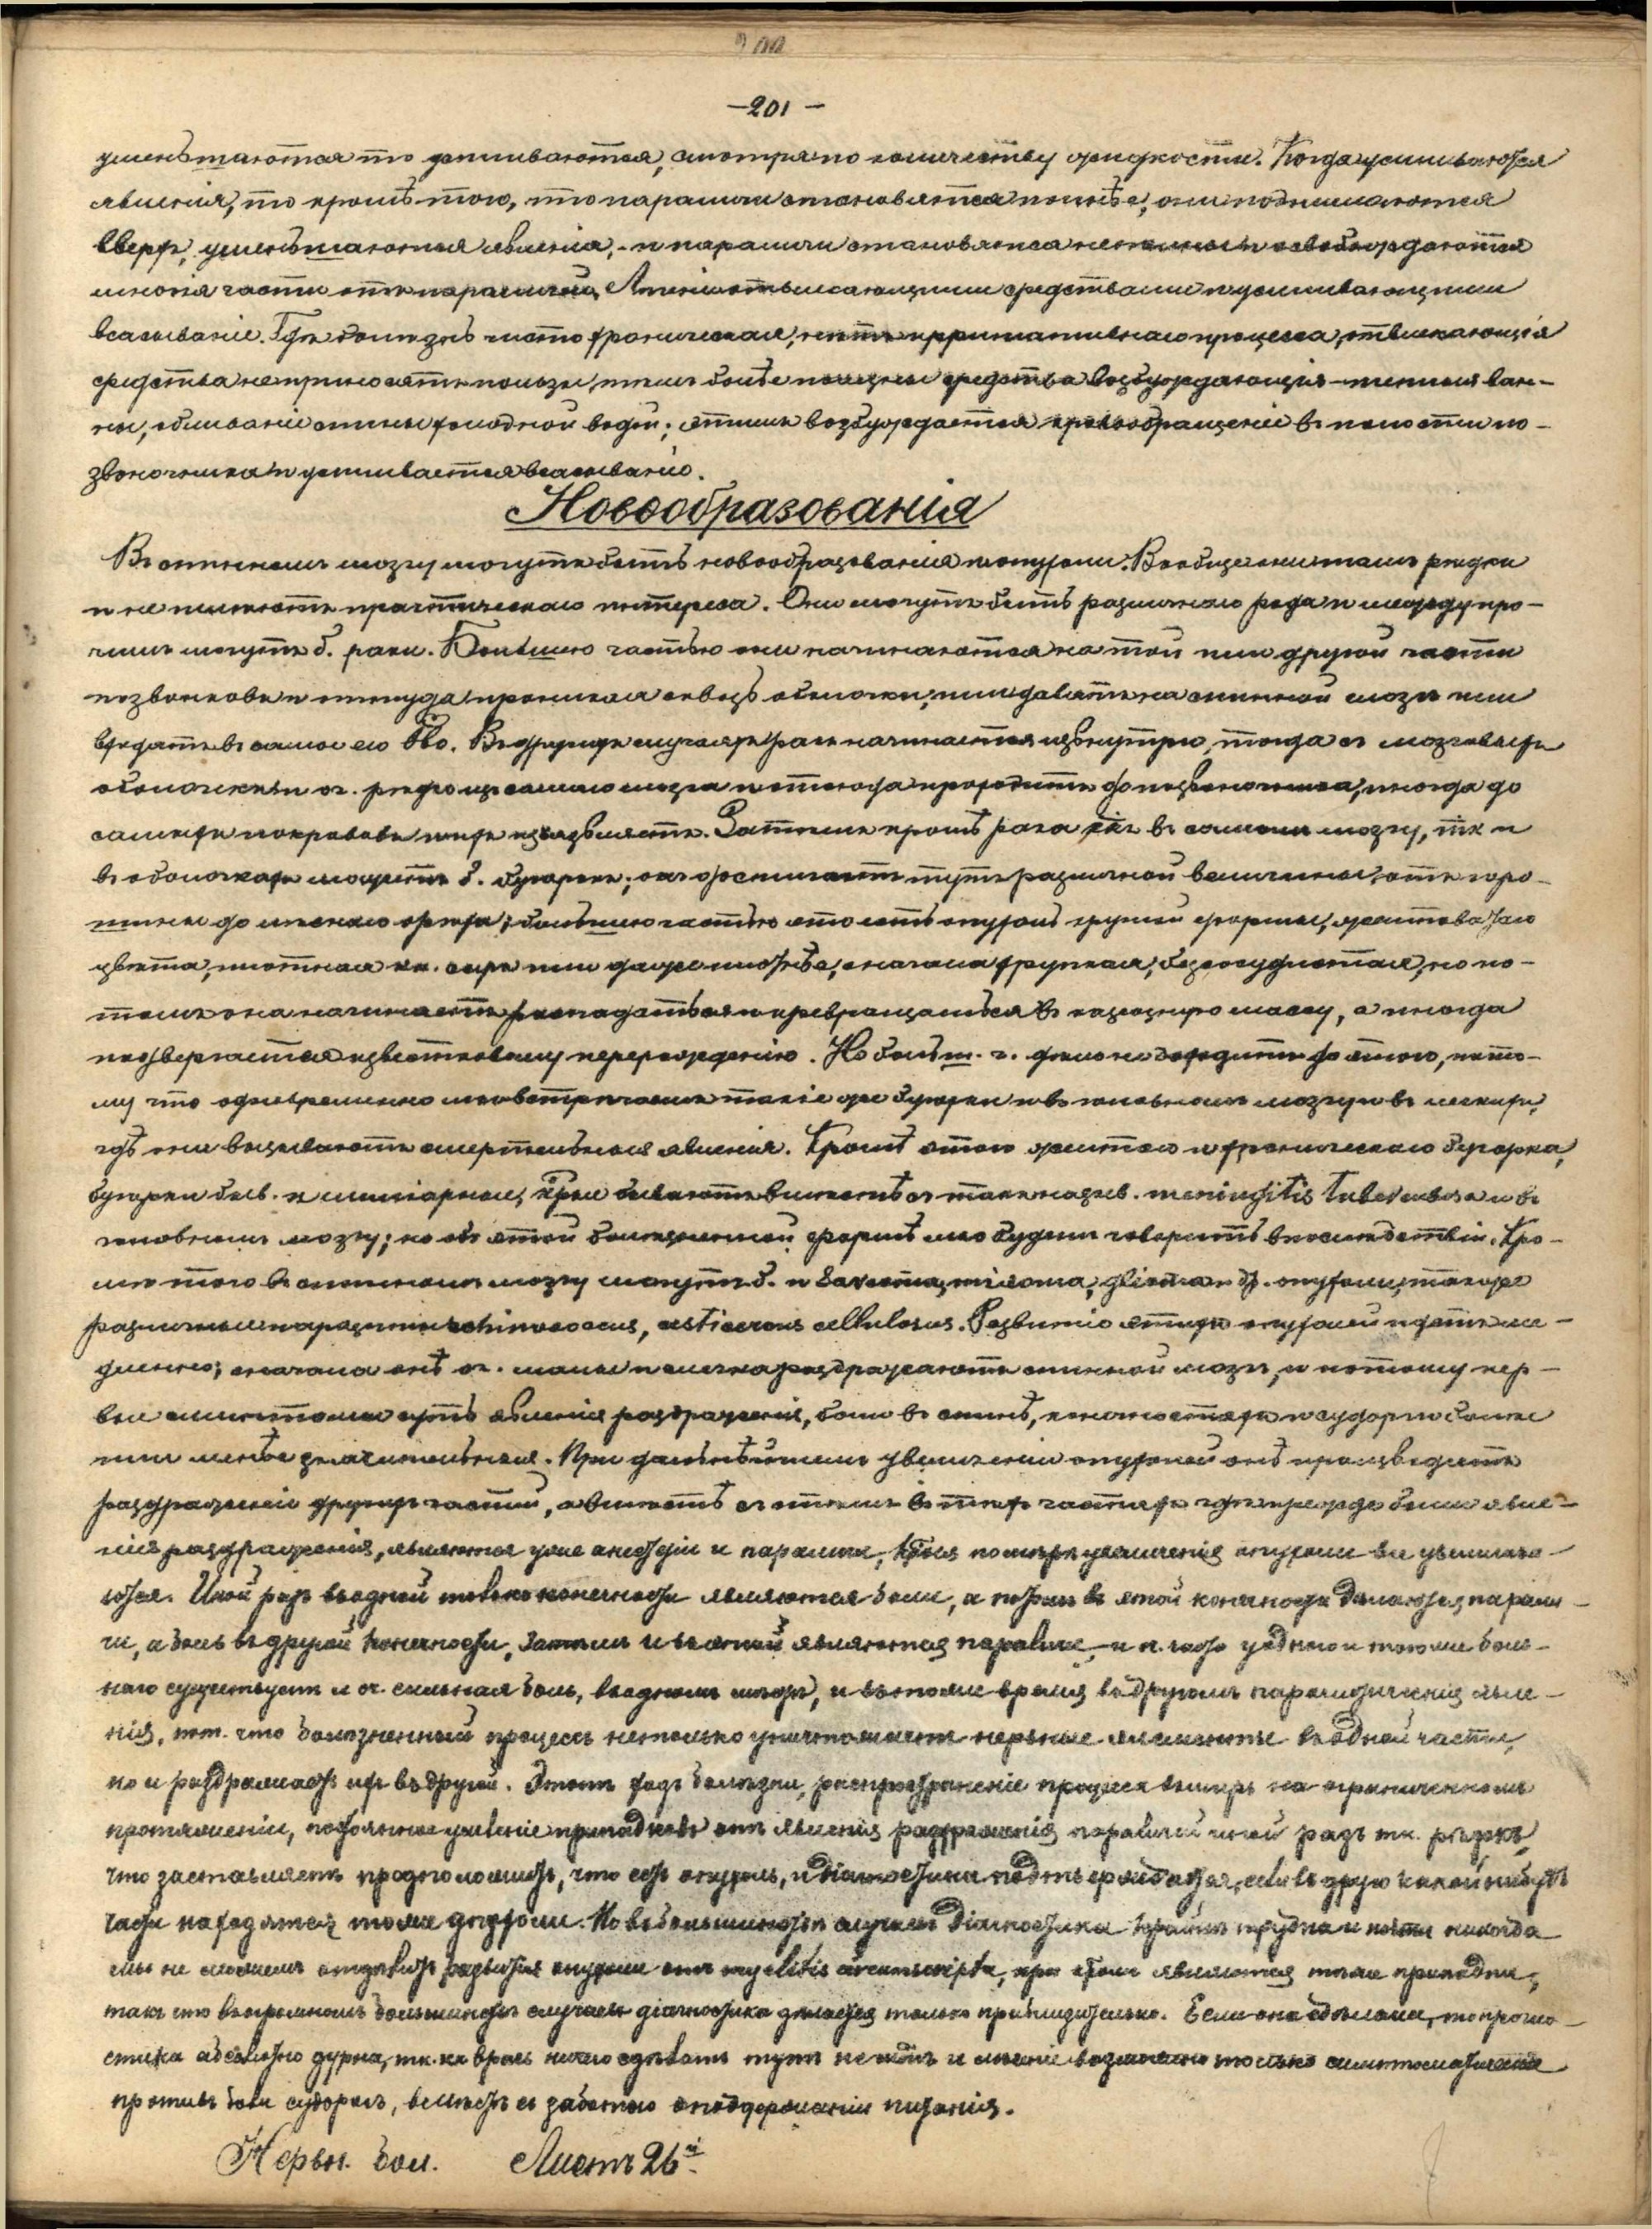 —201—
уменьшаются то усиливаются, смотря по количеству жидкости. Когда усиливаются
явленія, то кромѣ того, что параличи становятся полнѣе, они поднимаются
вверхъ, уменьшаются явленія, – и параличи становятся неполны и освобождаются
многія части отъ параличей. отвлекающими средствами и усиливающими
всасываніе. Гдѣ болѣзнь чисто хроническая, нѣтъ ирритативнаго процесса, отвлекающія
средства не приносятъ пользы, тѣмъ болѣе полезны средства возбуждающія – теплыя ван-
ны, обливаніе спины холодной водой; этимъ возбуждается кровообращеніе въ полости по-
звоночника и усиливается всасываніе.
Новообразованія
Въ спинномъ мозгу могутъ быть новообразованія и опухоли. Вообще они тамъ рѣдки
и не имѣютъ практическаго интереса. Они могутъ быть различнаго рода и между про-
чимъ могутъ б. раки. Большею частью они начинаются на той или другой части
позвонковъ и оттуда проникая сквозь оболочки, или давятъ на спинной мозгъ или
въ самое его в̅во. Въ другихъ случаяхъ ракъ начинается извнутри, тогда съ мозговыхъ
оболочекъ и оч. рѣдко изъ самаго мозга и оттуда проходитъ до позвоночника, иногда до
самыхъ покрововъ и ихъ изъязвляетъ. Затѣмъ кромѣ рака какъ въ самомъ мозгу, тк и
въ оболочкахъ можетъ б. бугорокъ; онъ достигаетъ тутъ различной величины, отъ горо-
шины до орѣха; большею частью это есть опухоль круглой формы, желтоватаго
цвѣта, плотная кк. сыръ или даже плотнѣе, сначала хрупкая, безсосудистая, но по-
томъ она начинаетъ распадаться и превращаться въ казеозную массу, а иногда
подвергается известковому перерожденію. Но больш. ч. дѣло не доходитъ до этого, пото-
му что одновременно мы встрѣчаемъ такіе же бугорки и въ головномъ мозгу и въ легкихъ,
гдѣ они вызываютъ смертельныя явленія. Кромѣ этого желтаго и хроническаго бугорка,
бугорки быв. и миліарные, кㄒрые бываютъ вмѣстѣ съ такъ назыв. meningitis tuberculosa и въ
головномъ мозгу; но объ этой болѣзненной формѣ мы будемъ говорить впослѣдствіи. Кро-
мѣ того въ спинномъ мозгу могутъ б. и Sarcoma, mixoma, glioma и др. опухоли, также
различные паразиты echinococcus, cysticercus cellulosus. Развитіе этихъ опухолей идетъ ме-
дленно; сначала онѣ оч. малы и слегка раздражаютъ спинной мозгъ, и потому пер-
вые симптомы суть явленія раздраженія, боли въ спинѣ, конечностяхъ и судороги болѣе
или менѣе значительныя. При дальнѣйшемъ увеличеніи опухолей онѣ производятъ
раздраженіе другихъ частей, а вмѣстѣ съ этимъ въ тѣхъ частяхъ гдѣ прежде были явле-
нія раздраженія, являются уже анестезіи и параличи, по мѣрѣ увеличенія опухоли все увеличива-
ются. Иной разъ въ одной только конечности являются боли, а потомъ въ этой конечности дѣлаются парали-
чи, а боль въ другой конечности, затѣмъ и въ этой являются параличи, и оч. часто у одного и того же боль-
наго существуетъ и оч. сильная боль, въ одномъ мѣстѣ, и въ то же время въ другомъ паралитическія явле-
нія, пот. что болѣзненный процессъ не только уничтожаетъ нервные элементы въ одной части,
но и раздражаетъ ихъ въ другой. Этотъ ходъ болѣзни, распространеніе процесса вширь на ограниченномъ
протяженіи, постоянное усиленіе припадковъ отъ явленія раздраженія параличей иной разъ тк. рѣзкъ,
что заставляетъ предположить, что есть опухоль, и діагностика подтверждается, если въ другой какой нибудь
части находятся тоже опухоли. Но въ большинствѣ случаевъ діагностика крайнѣ трудна и почти никогда
мы не можемъ отдѣлить развитія опухоли отъ myelitis circumscripta, при кㄒромъ являются тѣже припадки,
такъ что въ огромномъ большинствѣ случаевъ діагностика дѣлается только приблизительно. Если она сдѣлана, то прогно-
стика абсолютно дурна, тк. кк врачъ ничего сдѣлать тутъ не можетъ и леченіе возможно только симптоматическое
противъ боли судорогъ, вмѣстѣ съ заботою о поддержаніи питанія.
Нервн. бол. Листъ 26й.